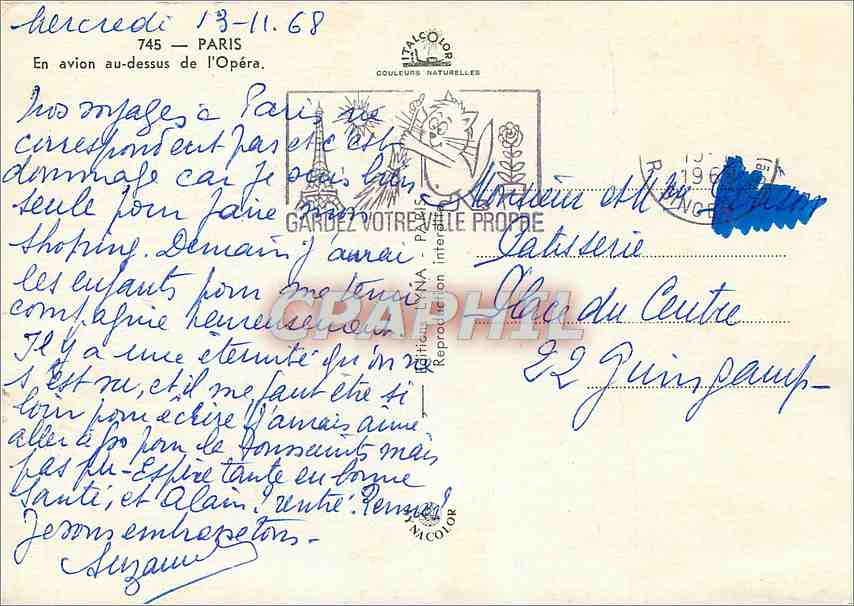 Mercredi 13-11.68
745 — PARIS
En avion au-dessus de l'Opéra.
ITALCOLOR
COULEURS NATURELLES
Nos voyages à Paris ne
correspondent pas et c'est
dommage car je suis bien
seule pour faire mon
shoping. Demain j'aurai
les enfants pour me tenir
compagnie heureusement
Il y a une éternité qu'on ne
s'est vu, et il me faut être si
loin pour écrire. J'aurais aimé
aller à pour la Toussaints mais
pas pu - Espère tante en bonne
santé, et Alain? rentré?
Je vous embrasse tous -
Suzanne
GARDEZ VOTRE VILLE PROPRE
196
Editions LYNA - PARIS
Reproduction interdite
CPAPHIL
Monsieur et Mme
Patisserie
Place du Centre
22 Guingamp -
LYNACOLOR